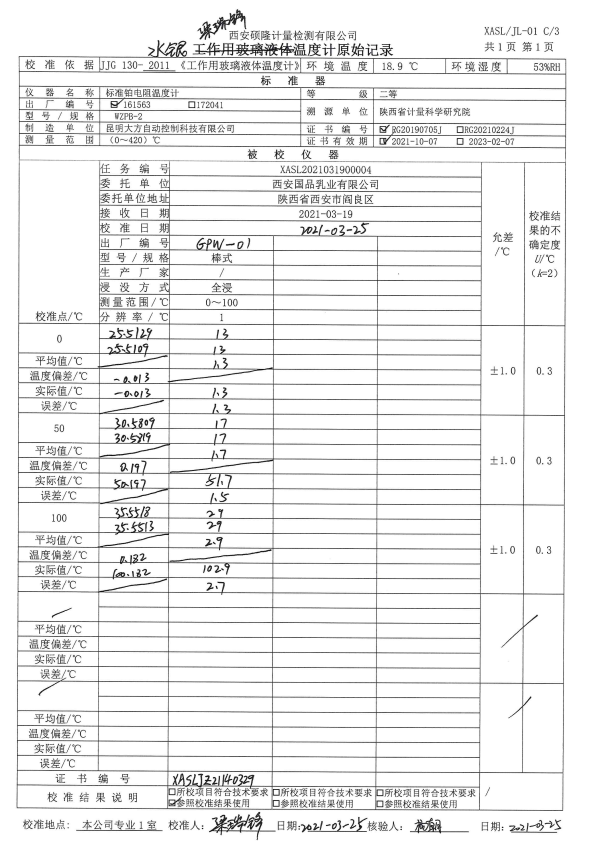 梁瑞锋
西安硕隆计量检测有限公司
XASL/JL-01 C/3
水银 工作用玻璃液体温度计原始记录
共 1 页 第 1 页
校准依据 JJG 130- 2011 《工作用玻璃液体温度计》 环境温度 18.9 ℃ 环境湿度 53%RH
标 准 器
仪器名称 标准铂电阻温度计 等级 二等
出厂编号 ☑161563 □172041 溯源单位 陕西省计量科学研究院
型号/规格 WZPB-2
制造单位 昆明大方自动控制科技有限公司 证书编号 ☑RG20190705J □RG20210224J
测量范围 (0～420)℃ 证书有效期 ☑2021-10-07 □2023-02-07
被 校 仪 器
任务编号 XASL2021031900004
委托单位 西安国品乳业有限公司
委托单位地址 陕西省西安市阎良区
接收日期 2021-03-19
校准日期 2021-03-25
出厂编号 GPW-01
型号/规格 棒式
生产厂家 /
浸没方式 全浸
测量范围/℃ 0～100
校准点/℃ 分辨率/℃ 1
允差/℃
校准结果的不确定度U/℃（k=2）
0 25.5129 13
25.5109 13
±1.0 0.3
平均值/℃ 1.3
温度偏差/℃ -0.013
实际值/℃ -0.013 1.3
误差/℃ 1.3
50 30.5809 17
30.5819 17
±1.0 0.3
平均值/℃ 1.7
温度偏差/℃ 0.197
实际值/℃ 50.197 51.7
误差/℃ 1.5
100 35.5518 29
35.5513 29
±1.0 0.3
平均值/℃ 2.9
温度偏差/℃ 0.182
实际值/℃ 100.182 102.9
误差/℃ 2.7
/
平均值/℃
温度偏差/℃
实际值/℃
误差/℃
/
平均值/℃
温度偏差/℃
实际值/℃
误差/℃
证书编号 XASLJZ21140329
校准结果说明 □所校项目符合技术要求 □所校项目符合技术要求 □所校项目符合技术要求 /
☑参照校准结果使用 □参照校准结果使用 □参照校准结果使用
校准地点: 本公司专业1室 校准人: 梁瑞锋 日期: 2021-03-25 核验人: 日期: 2021-03-25